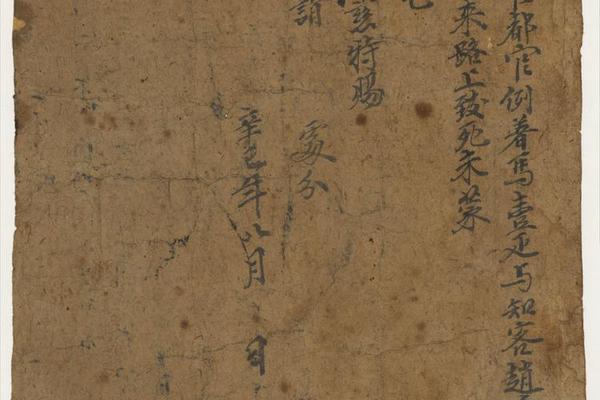 都官例著馬壹疋与知客趙
来路上致死未蒙
慈特賜
請
處分
辛巳年八月 日